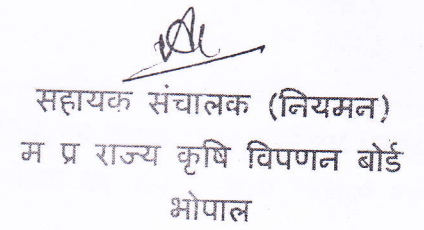 सहायक संचालक (नियमन)
म प्र राज्य कृषि विपणन बोर्ड
भोपाल